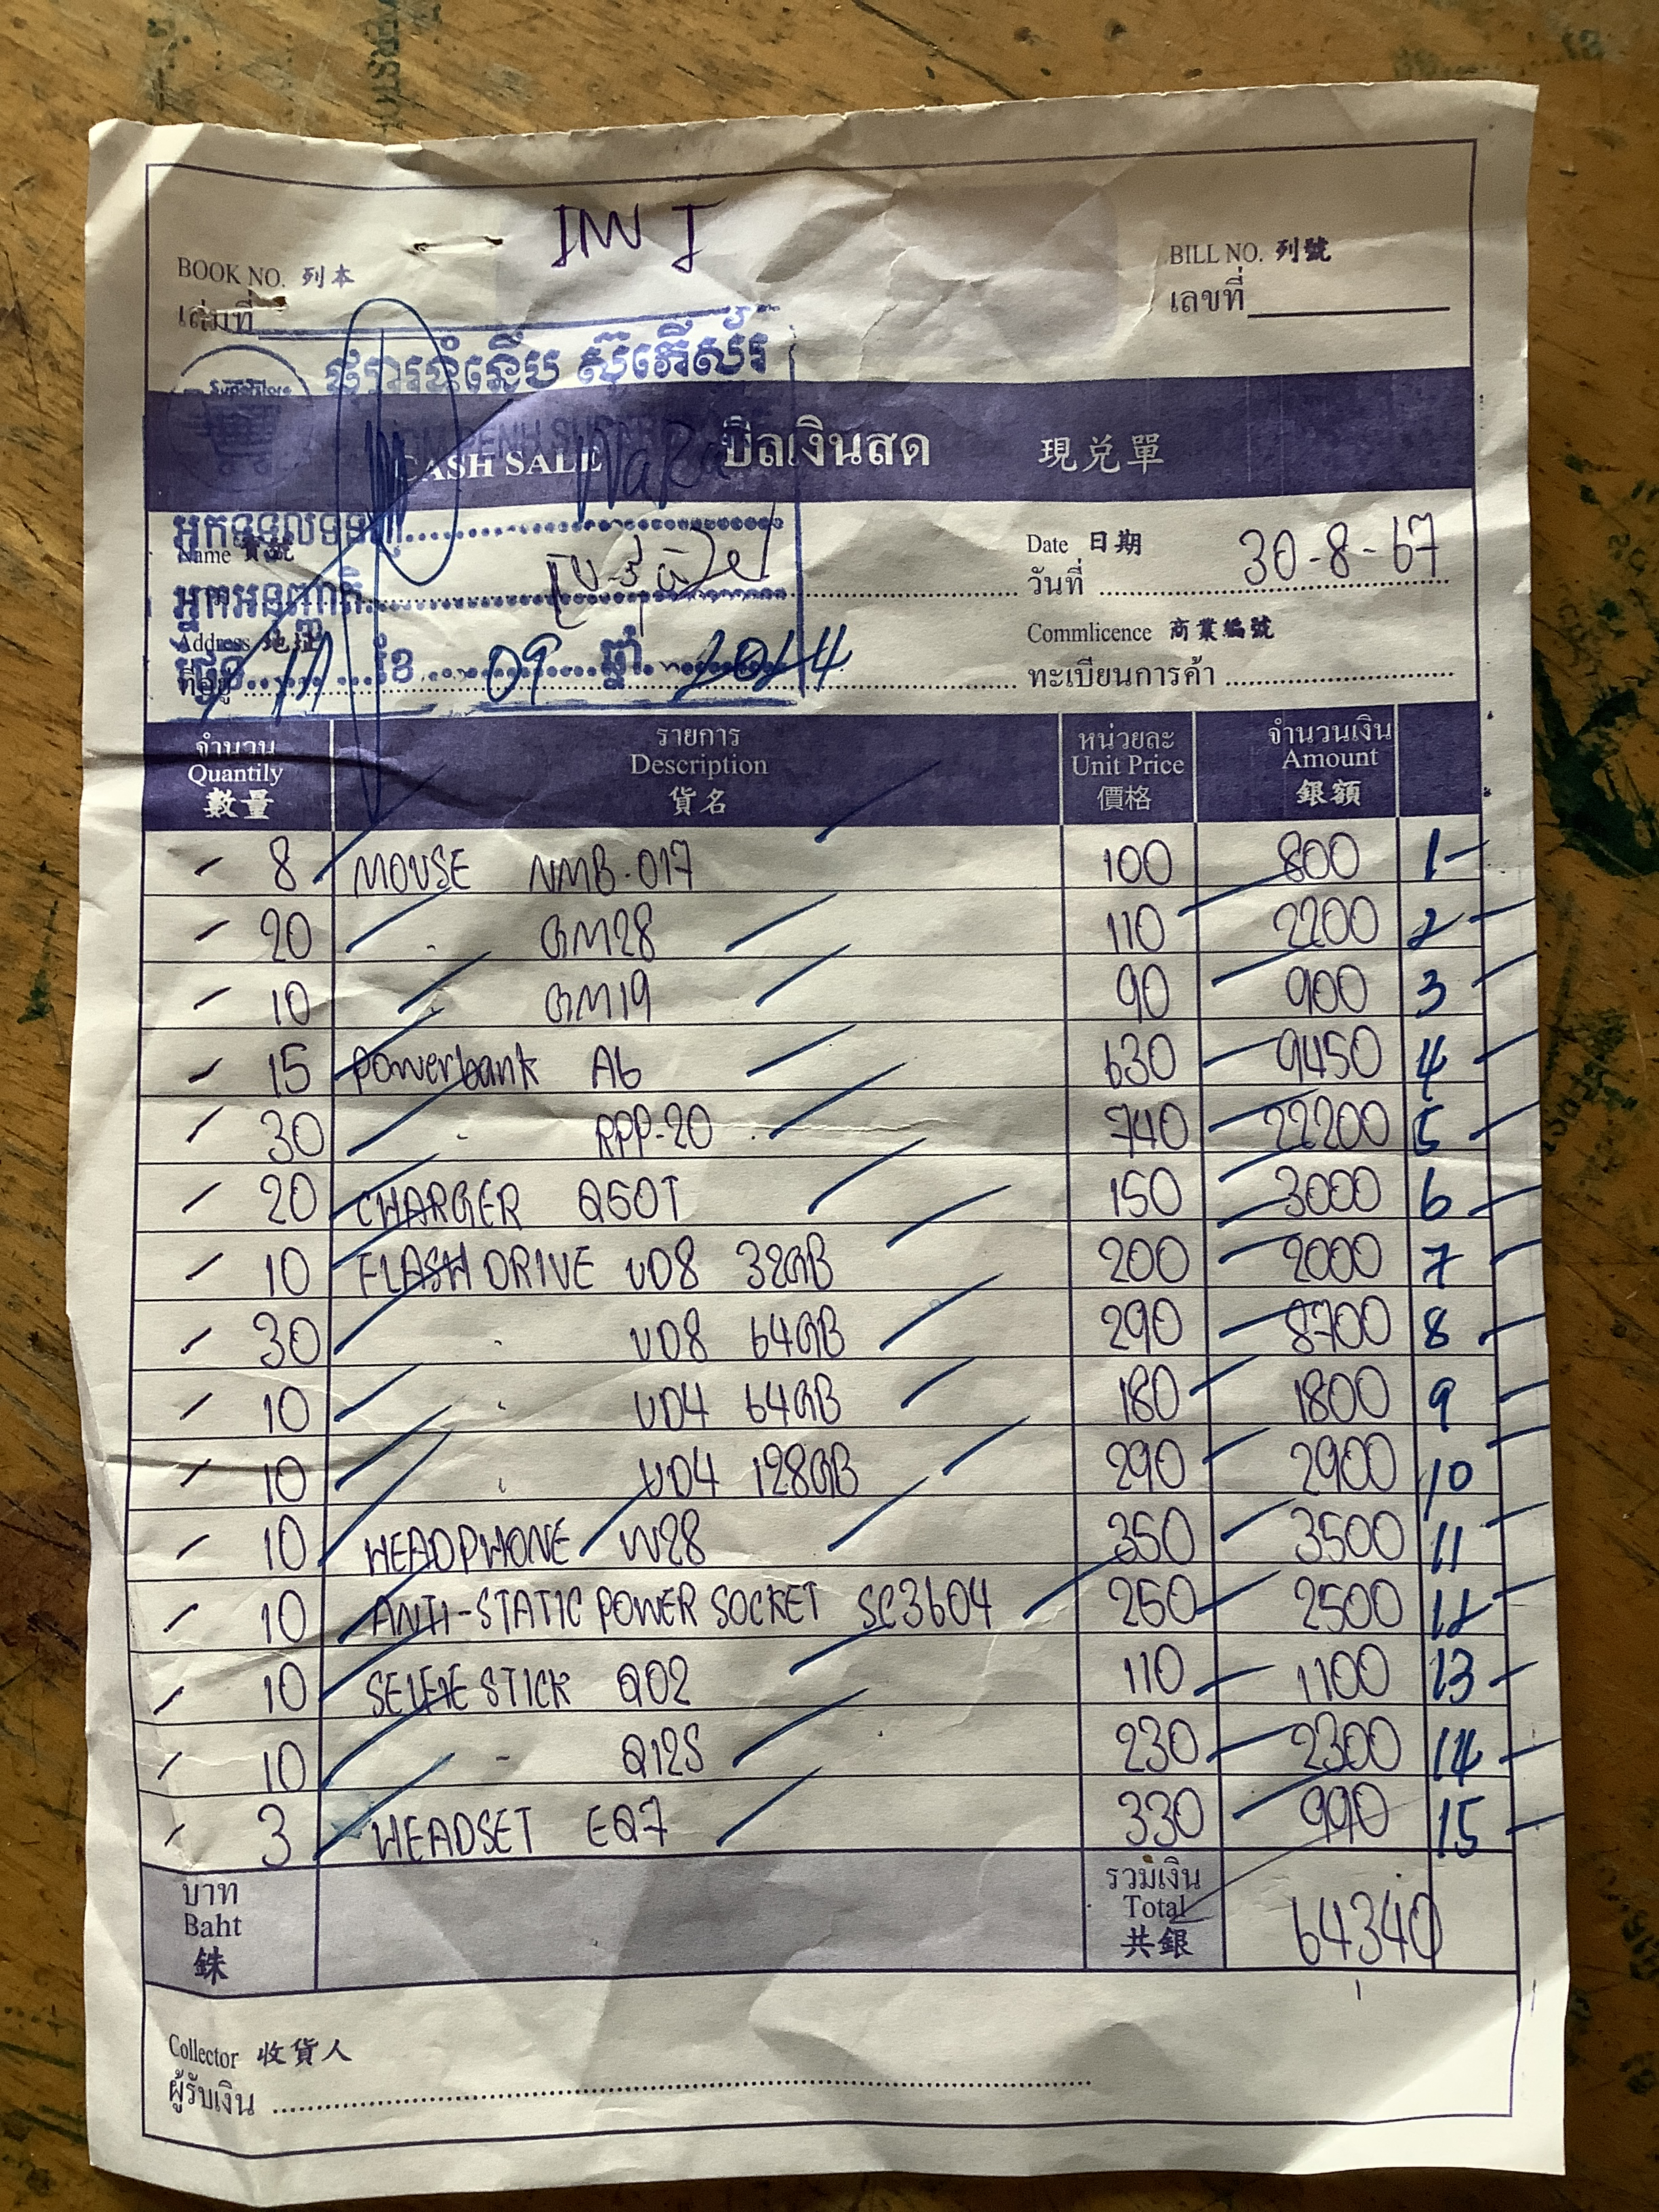 INV I
BOOK NO. 列本
เล่มที่
BILL NO. 列號
เลขที่
ផ្សារទំនើប ស៊ូភើស័រ
Superstore
CASH SALE บิลเงินสด 現兌單
អ្នកទទួលទំនិញ
Name 寶號
Date 日期
วันที่ 30-8-67
អ្នកអនុញ្ញាតិ
Address 地址
Commlicence 商業編號
ថ្ងៃទី 11 ខែ 09 ឆ្នាំ 2024
ที่อยู่
ทะเบียนการค้า
จำนวน รายการ หน่วยละ จำนวนเงิน
Quantily Description Unit Price Amount
數量 貨名 價格 銀額
8 MOUSE NMB-017 100 800 1
20 " GM28 110 2200 2
10 " GM19 90 900 3
15 Powerbank A6 630 9450 4
30 " RPP-20 740 22200 5
20 CHARGER Q50T 150 3000 6
10 FLASH DRIVE UD8 32GB 200 2000 7
30 " UD8 64GB 290 8700 8
10 " UD4 64GB 180 1800 9
10 " UD4 128GB 290 2900 10
10 HEADPHONE W28 350 3500 11
10 ANTI-STATIC POWER SOCKET SC3604 250 2500 12
10 SELFIE STICK Q02 110 1100 13
10 - Q12S 230 2300 14
3 HEADSET EQ7 330 990 15
บาท รวมเงิน
Baht Total 64340
銖 共銀
Collector 收貨人
ผู้รับเงิน